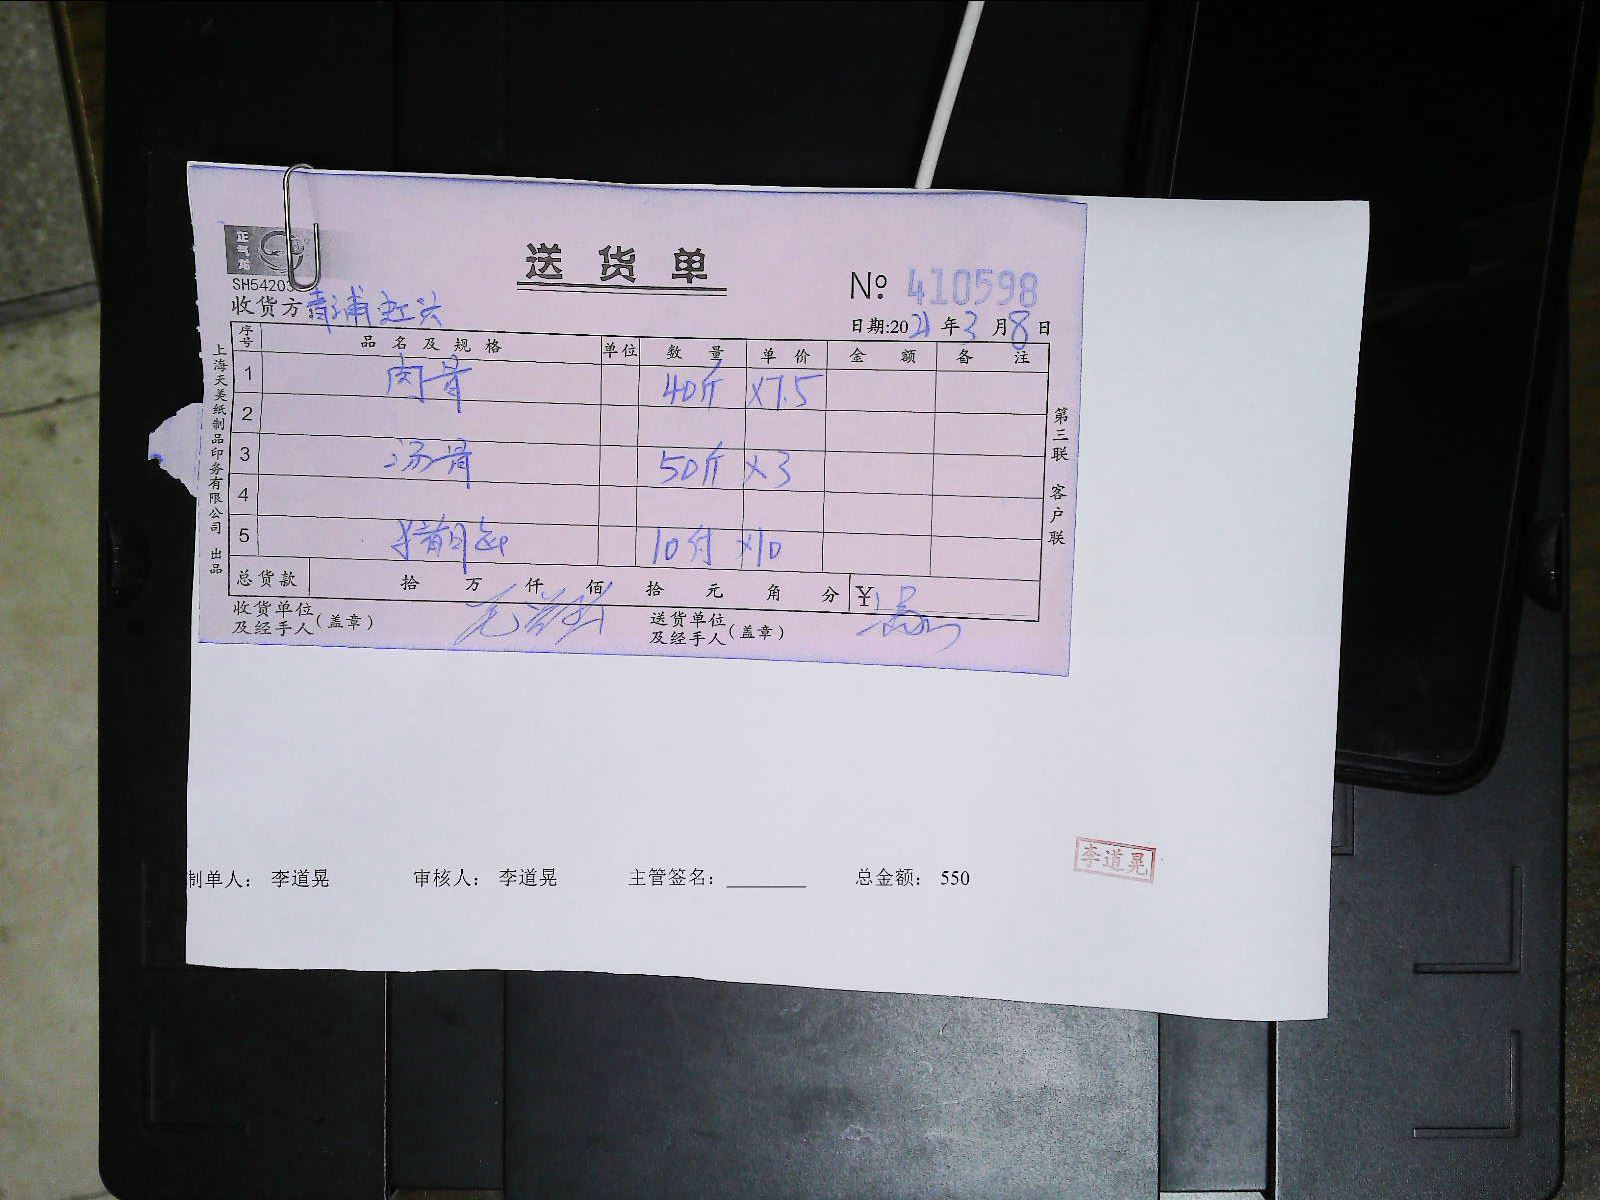 正气局
SH54203
送货单
№ 410598
收货方:青浦虹头
日期:2021年3月8日
序号 品名及规格 单位 数量 单价 金额 备注
1 肉骨 40斤 ×7.5
2
3 汤骨 50斤 ×3
4
5 10付 ×10
总货款 拾 万 仟 佰 拾 元 角 分 ¥
收货单位及经手人(盖章)
送货单位及经手人(盖章)
上海天美纸制品印务有限公司 出品
第三联 客户联
制单人: 李道晃 审核人: 李道晃 主管签名: ________ 总金额: 550
李道晃